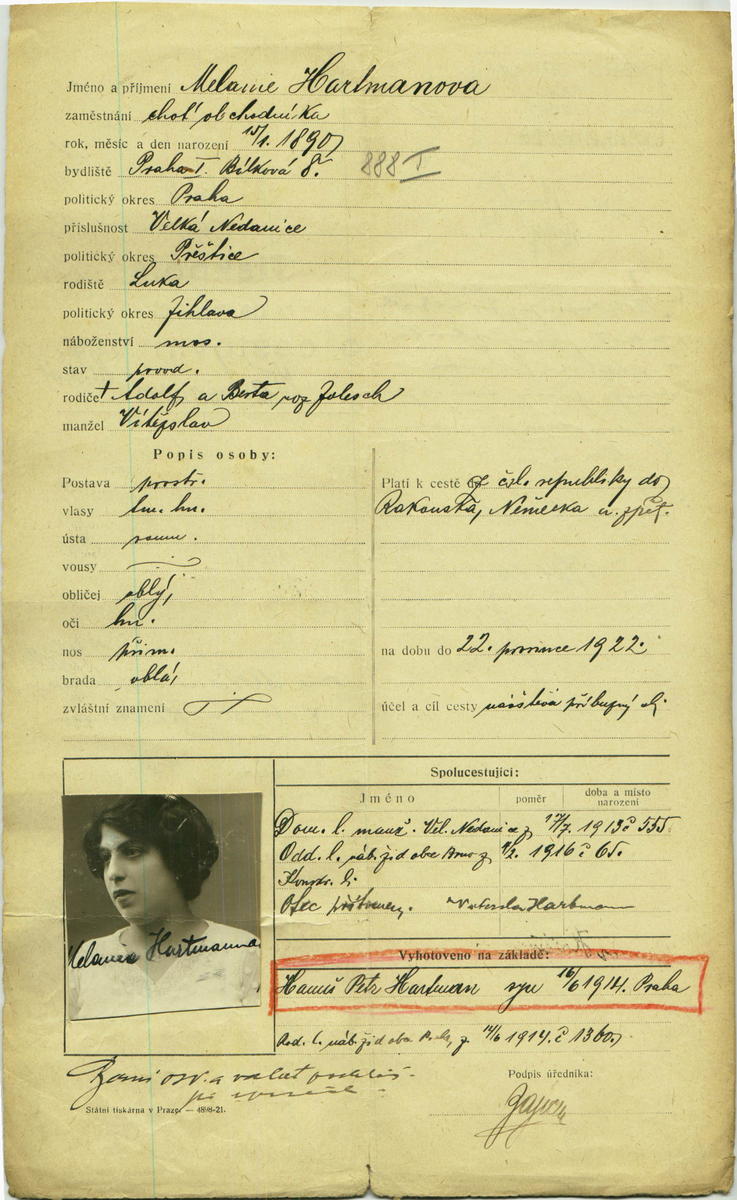 Jméno a příjmení Melanie Hartmanova
zaměstnání choť obchodníka
rok, měsíc a den narození 15/1. 1890
bydliště Praha I. Bílková 8. 888 I
politický okres Praha
příslušnost Velká Nedanice
politický okres Přěštice
rodiště Luka
politický okres Jihlava
náboženství mos.
stav provd.
rodiče † Adolf a Berta roz Jolesch
manžel Vítězslav
Popis osoby:
Postava prostr.
vlasy tm. hn.
ústa soum.
vousy
obličej oblý,
oči hn.
nos přim.
brada oblá,
zvláštní znamení
Platí k cestě z čsl. republiky do
Rakouska, Německa a zpět.
na dobu do 22. prosince 1922.
účel a cíl cesty návštěva příbuzných
Spolucestující:
Jméno poměr doba a místo narození
Dom. l. manž. Vel. Nedanice z 17/7. 1913 č 555
Odd. l. náb. žid obce Brno z 1916 č 65.
Otec Hartmann
Vyhotoveno na základě:
Hanuš Petr Hartman syn 16/6 1914. Praha
Rod. l. náb. žid obce z 1914. č 1360
Melanie Hartmannova
Podpis úředníka:
Státní tiskárna v Praze. — 4898-21.